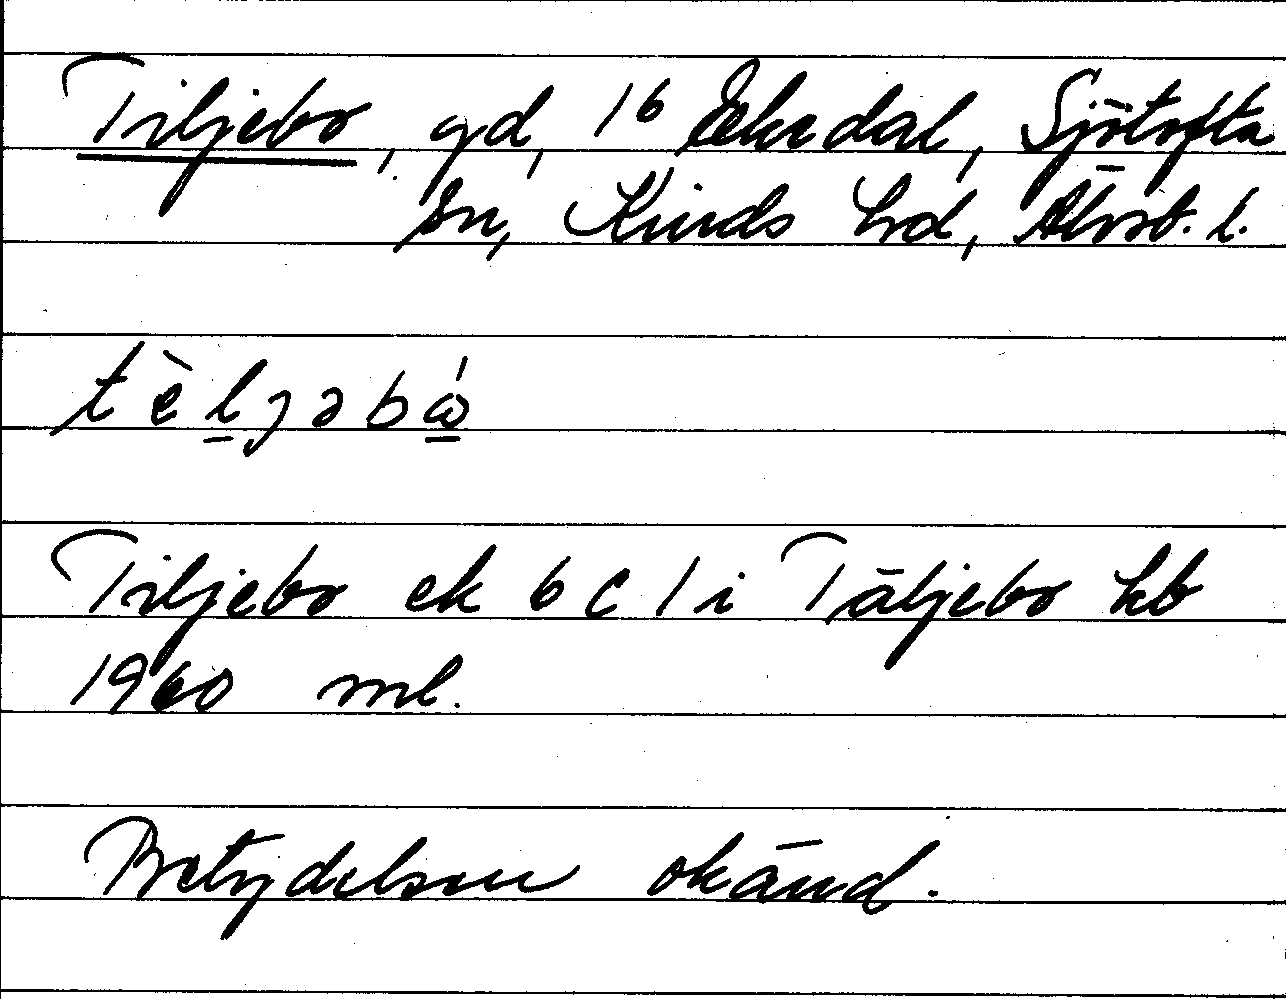 Tiljebo, gd, 1⁶ Ekedal, Sjötofta
sn, Kinds hd, Älvsb. l.
tèl̠jəbώ̠
Tiljebo ek 6 c 1 i Täljebo hb
1960 ml.
Betydelsen okänd.